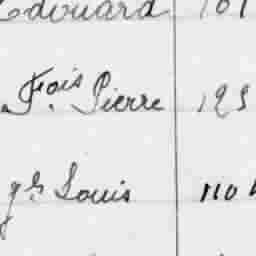 Edouard 101
Fois Pierre 125
gs Louis 110